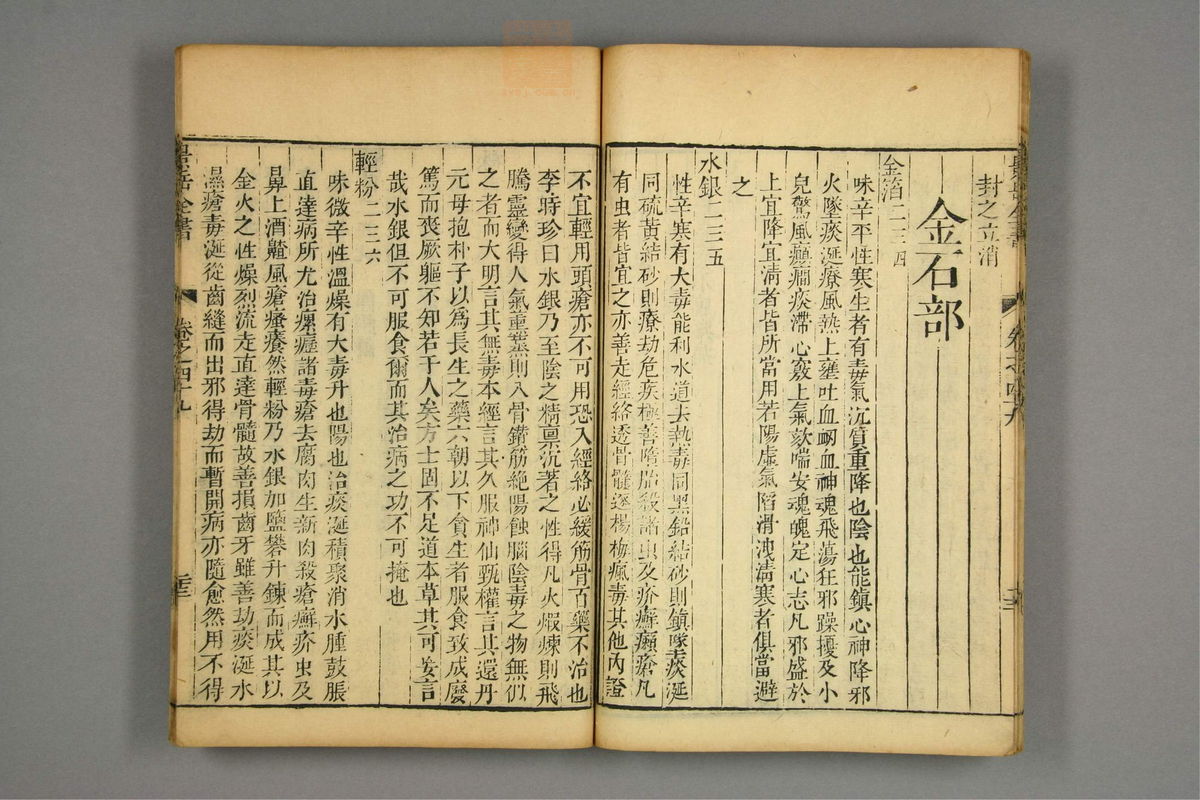 封之立消
金石部
金箔二三四
味辛平性寒生者有毒氣沉質重降也陰也能鎮心神降邪
火墜痰涎療風熱上壅吐血衂血神魂飛蕩狂邪躁擾及小
兒驚風癲癇痰滯心竅上氣欬喘安魂魄定心志凡邪盛於
上宜降宜清者皆所當用若陽虛氣陷滑洩清寒者俱當避
之
水銀二三五
性辛寒有大毒能利水道去熱毒同黑鉛結砂則鎮墜痰涎
同硫黃結砂則療劫危疾極善墮胎殺諸虫及疥癬癩瘡凡
有虫者皆宜之亦善走經絡透骨髓逐楊梅瘋毒其他內證
不宜輕用頭瘡亦不可用恐入經絡必緩筋骨百藥不治也
李時珍曰水銀乃至陰之精稟沉著之性得凡火煆煉則飛
騰靈變得人氣熏蒸則入骨鑽筋絕陽蝕腦陰毒之物無似
之者而大明言其無毒本經言其久服神仙甄權言其還丹
元母抱朴子以爲長生之藥六朝以下貪生者服食致成廢
篤而喪厥軀不知若干人矣方士固不足道本草其可妄言
哉水銀但不可服食爾而其治病之功不可掩也
輕粉二三六
味微辛性溫燥有大毒升也陽也治痰涎積聚消水腫鼓脹
直達病所尤治瘰癧諸毒瘡去腐肉生新肉殺瘡癬疥虫及
鼻上酒齄風瘡瘙癢然輕粉乃水銀加鹽礬升鍊而成其以
金火之性燥烈流走直達骨髓故善損齒牙雖善劫痰涎水
濕瘡毒涎從齒縫而出邪得劫而暫開病亦隨愈然用不得
景岳全書
卷之四十九